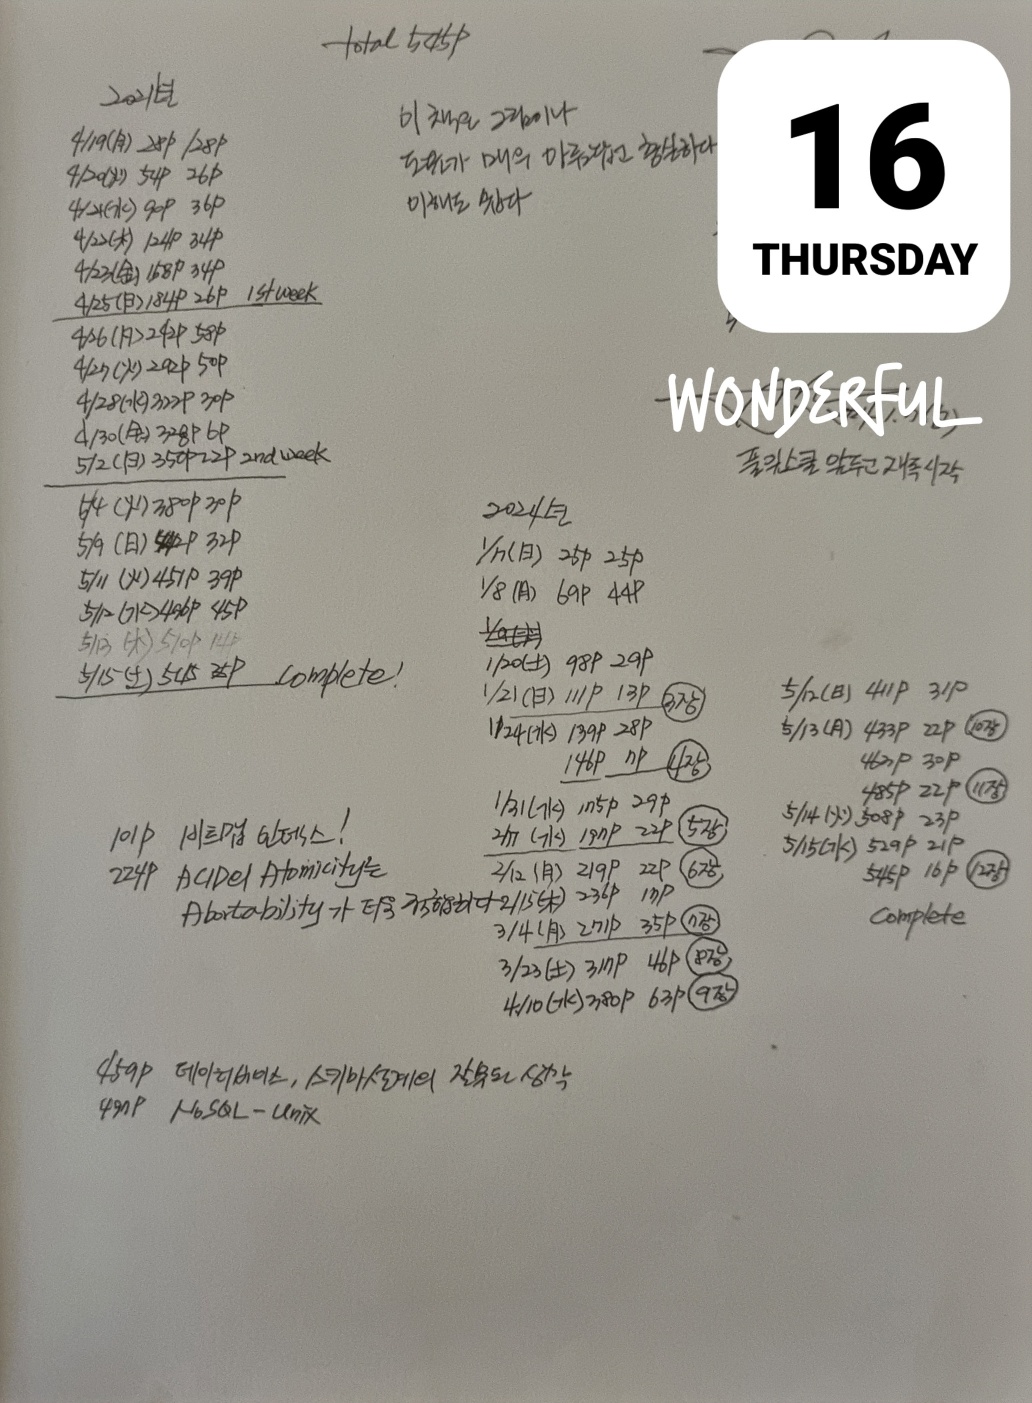 total 545p
2021년
4/19(月) 28p /28p
4/20(火) 54p 26p
4/21(水) 90p 36p
4/22(木) 124p 34p
4/23(金) 158p 34p
4/25(日) 184p 26p 1st week
4/26(月) 242p 58p
4/27(火) 292p 50p
4/28(水) 322p 30p
4/30(金) 328p 6p
5/2(日) 350p 22p 2nd week
5/4 (火) 380p 30p
5/9 (日) 32p
5/11 (火) 451p 39p
5/12(水) 496p 45p
5/13 (木) 510p 14p
5/15(土) 545 35p complete!
이 책은 그림이나
도표가 매의 마루라고
이해도 쉽다
16
THURSDAY
WONDERFUL
앞두고 재독시작
2024년
1/7(日) 25p 25p
1/8(月) 69p 44p
1/20(土) 98p 29p
1/21(日) 111p 13p 3장
1/24(水) 139p 28p
146p 7p 4장
1/31(水) 175p 29p
2/7 (水) 197p 22p 5장
2/12 (月) 219p 22p 6장
2/15(木) 236p 17p
3/4(月) 271p 35p 7장
3/23(土) 317p 46p 8장
4/10(水) 380p 63p 9장
5/12(日) 411p 31p
5/13(月) 433p 22p 10장
463p 30p
485p 22p 11장
5/14(火) 508p 23p
5/15(水) 529p 21p
545p 16p 12장
complete
101p 비트맵 인덱스!
224p ACID의 Atomicity는
Abortability가 더욱 적합하다
459p 데이터베이스, 스키마설계의 잘못된 생각
497p NoSQL - Unix